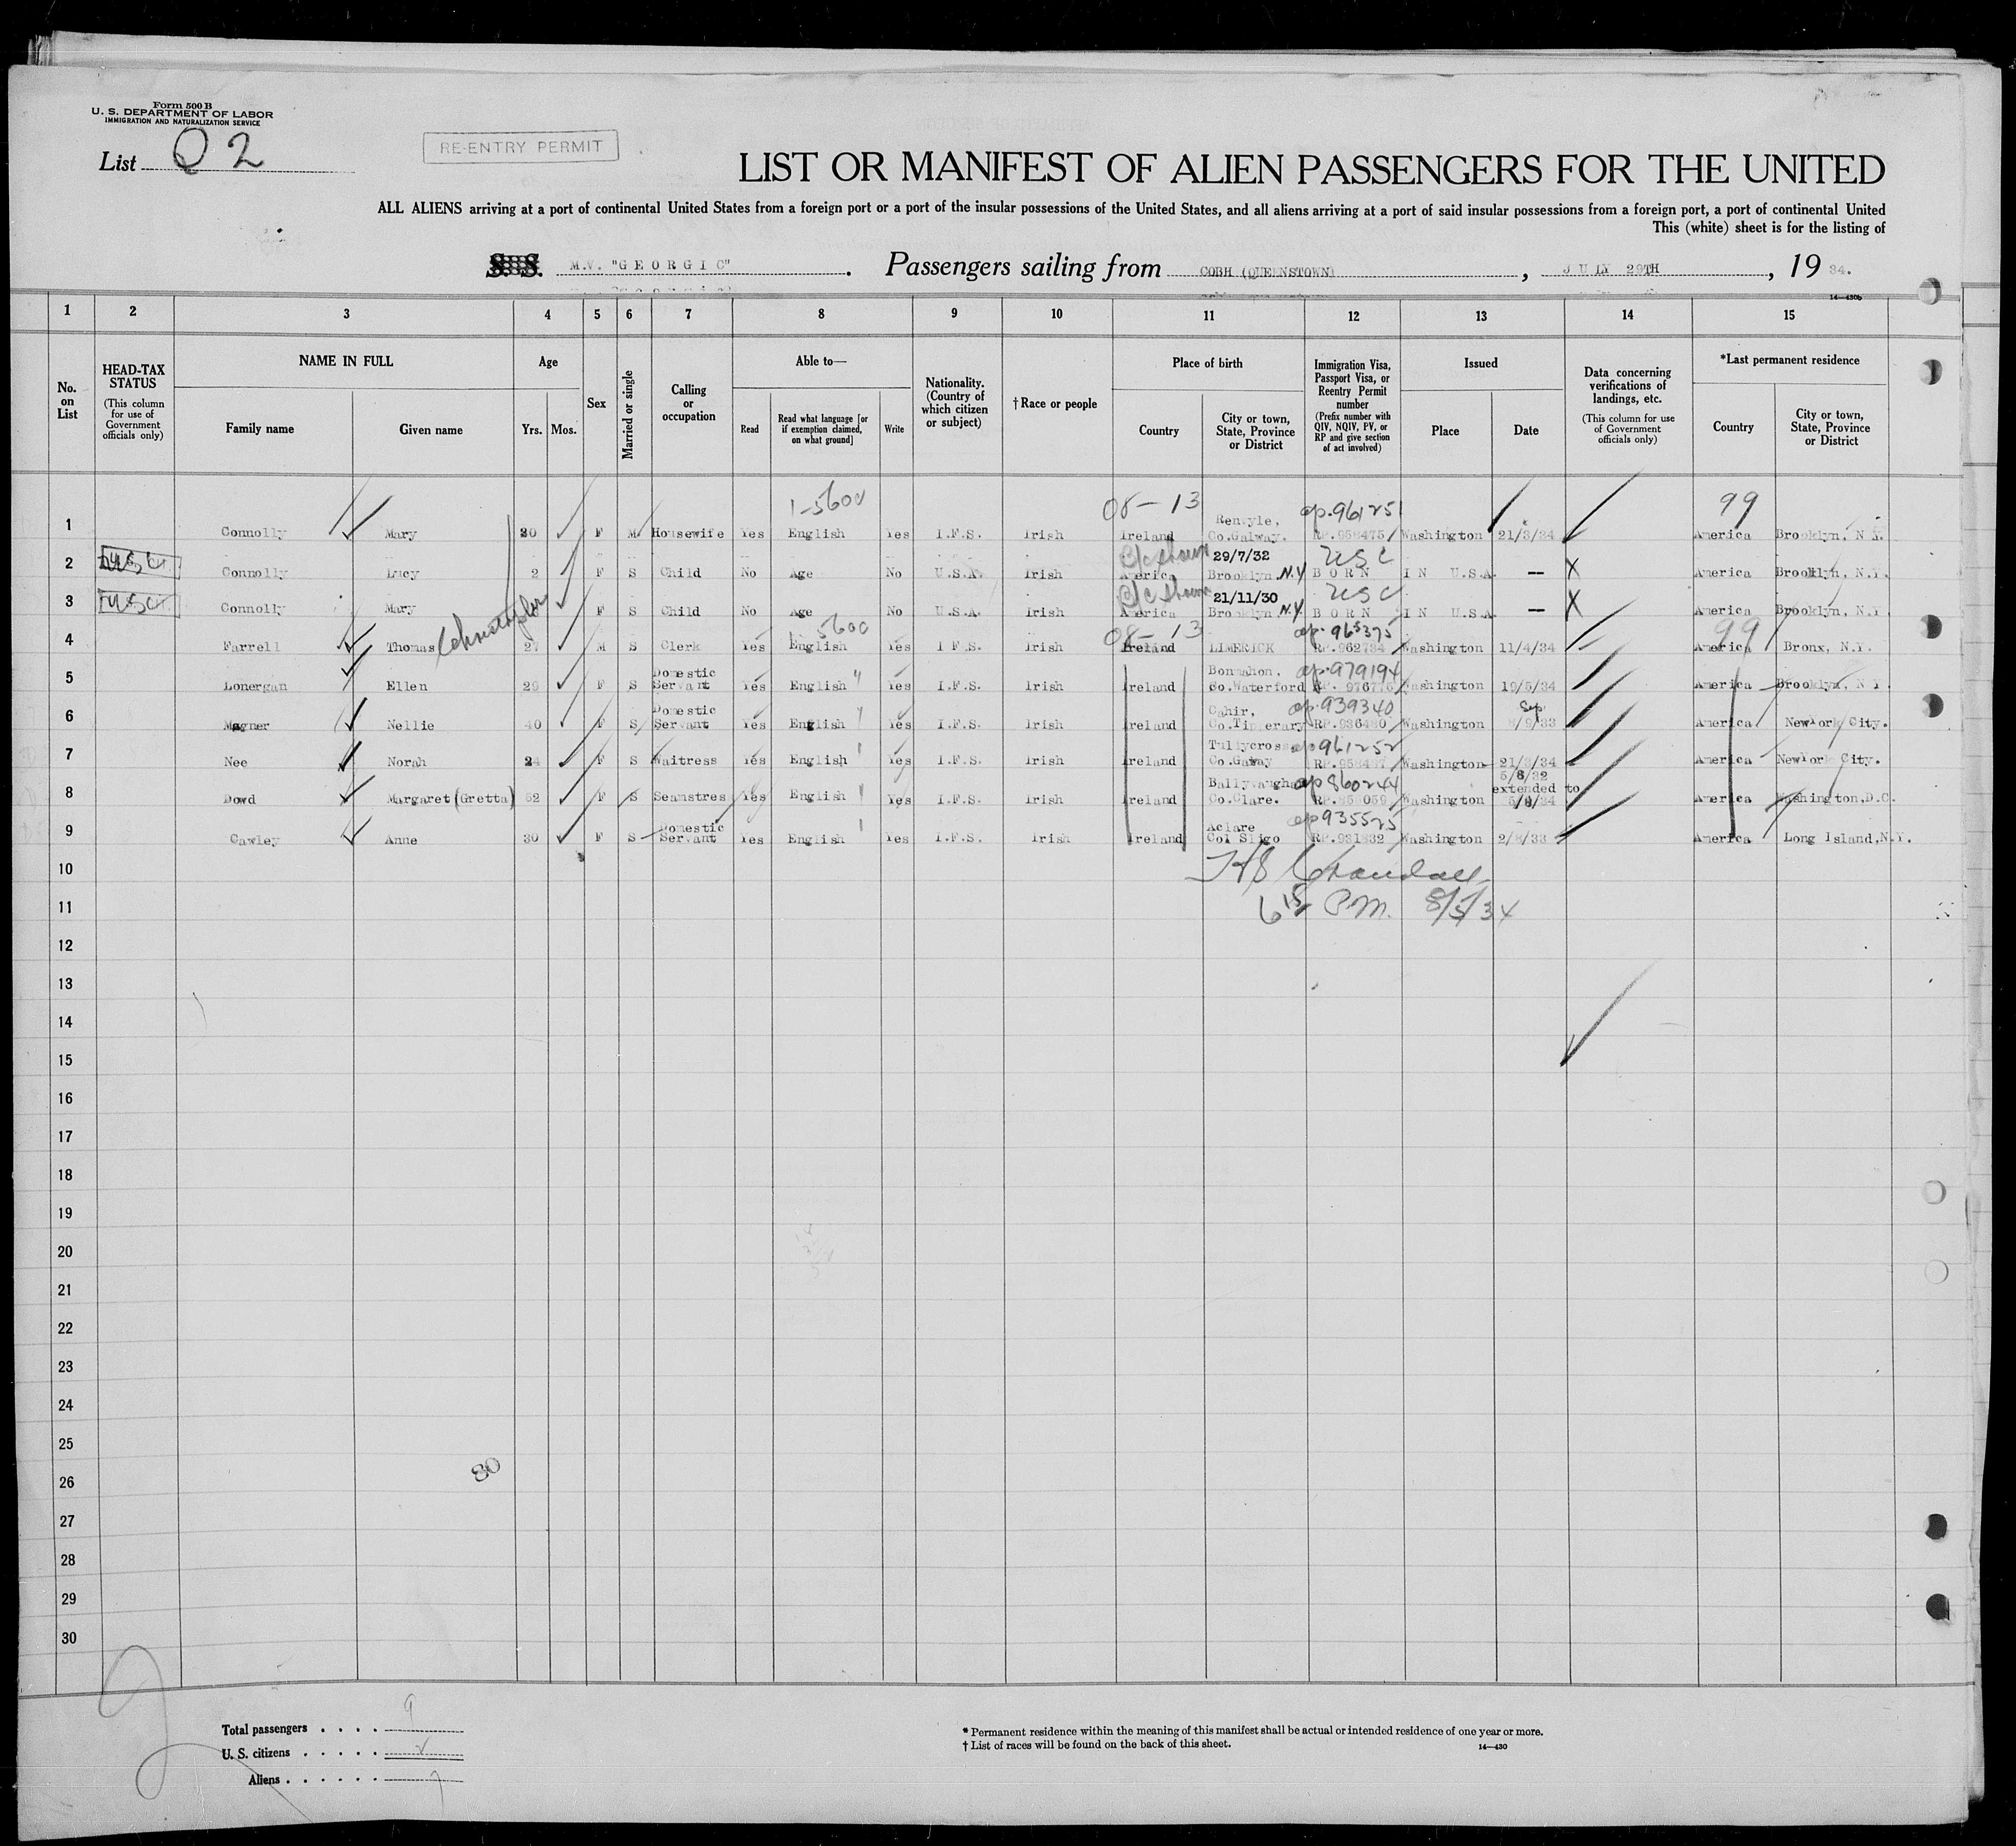 Form 500 B
U. S. DEPARTMENT OF LABOR
IMMIGRATION AND NATURALIZATION SERVICE
List Q 2
RE-ENTRY PERMIT
LIST OR MANIFEST OF ALIEN PASSENGERS FOR THE UNITED
ALL ALIENS arriving at a port of continental United States from a foreign port or a port of the insular possessions of the United States, and all aliens arriving at a port of said insular possessions from a foreign port, a port of continental United
This (white) sheet is for the listing of
S. S. M.V. "G E O R G I C" . Passengers sailing from COBH (QUEENSTOWN) , JULY 29TH , 19 34.
14—430b
1 2 3 4 5 6 7 8 9 10 11 12 13 14 15
No. on List
HEAD-TAX STATUS (This column for use of Government officials only)
NAME IN FULL Family name Given name
Age Yrs. Mos.
Sex
Married or single
Calling or occupation
Able to— Read Read what language [or if exemption claimed, on what ground] Write
Nationality. (Country of which citizen or subject)
† Race or people
Place of birth Country City or town, State, Province or District
Immigration Visa, Passport Visa, or Reentry Permit number (Prefix number with QIV, NQIV, PV, or RP and give section of act involved)
Issued Place Date
Data concerning verifications of landings, etc. (This column for use of Government officials only)
*Last permanent residence Country City or town, State, Province or District
1-5600 08-13 Renvyle, op.961251 99
1 Connolly Mary 30 F M Housewife Yes English Yes I.F.S. Irish Ireland Co.Galway. RP.958475 Washington 21/3/34 America Brooklyn, N.Y.
29/7/32 USC
2 USC Connolly Lucy 2 F S Child No Age No U.S.A. Irish America Brooklyn N.Y BORN IN U.S.A. — X America Brooklyn, N.Y.
21/11/30 USC
3 USC Connolly Mary F S Child No Age No U.S.A. Irish America Brooklyn N.Y. BORN IN U.S.A. — X America Brooklyn, N.Y.
5600 08-13 op.965375 99
4 Farrell Thomas Christopher 27 M S Clerk Yes English Yes I.F.S. Irish Ireland LIMERICK RP.962734 Washington 11/4/34 America Bronx, N.Y.
Domestic Bonmahon, op.979194
5 Lonergan Ellen 29 F S Servant Yes English " Yes I.F.S. Irish Ireland Co.Waterford RP. 976775 Washington 19/5/34 America Brooklyn, N.Y.
Domestic Cahir, op.939340 Sep
6 Magner Nellie 40 F S Servant Yes English " Yes I.F.S. Irish Ireland Co.Tipperary RP.936480 Washington 8/9/33 America New York City.
Tullycross op961252
7 Nee Norah 24 F S Waitress Yes English Yes I.F.S. Irish Ireland Co.Galway Washington 21/3/34 America New York City.
Ballyvaughan op860244 5/8/32 extended to
8 Dowd Margaret (Gretta) 52 F S Seamstres Yes English " Yes I.F.S. Irish Ireland Co.Clare. Washington 5/8/34 America Washington, D.C.
Domestic Aclare op935525
9 Cawley Anne 30 F S Servant Yes English Yes I.F.S. Irish Ireland Co. Sligo RP.931832 Washington 2/8/33 America Long Island, N.Y.
10
11 6 15 P.M. 8/5/34
12
13
14
15
16
17
18
19
20
21
22
23
24
25
26 80
27
28
29
30
Total passengers . . . . 9
U. S. citizens . . . . . 2
Aliens . . . . . . 7
* Permanent residence within the meaning of this manifest shall be actual or intended residence of one year or more.
† List of races will be found on the back of this sheet.
14—430